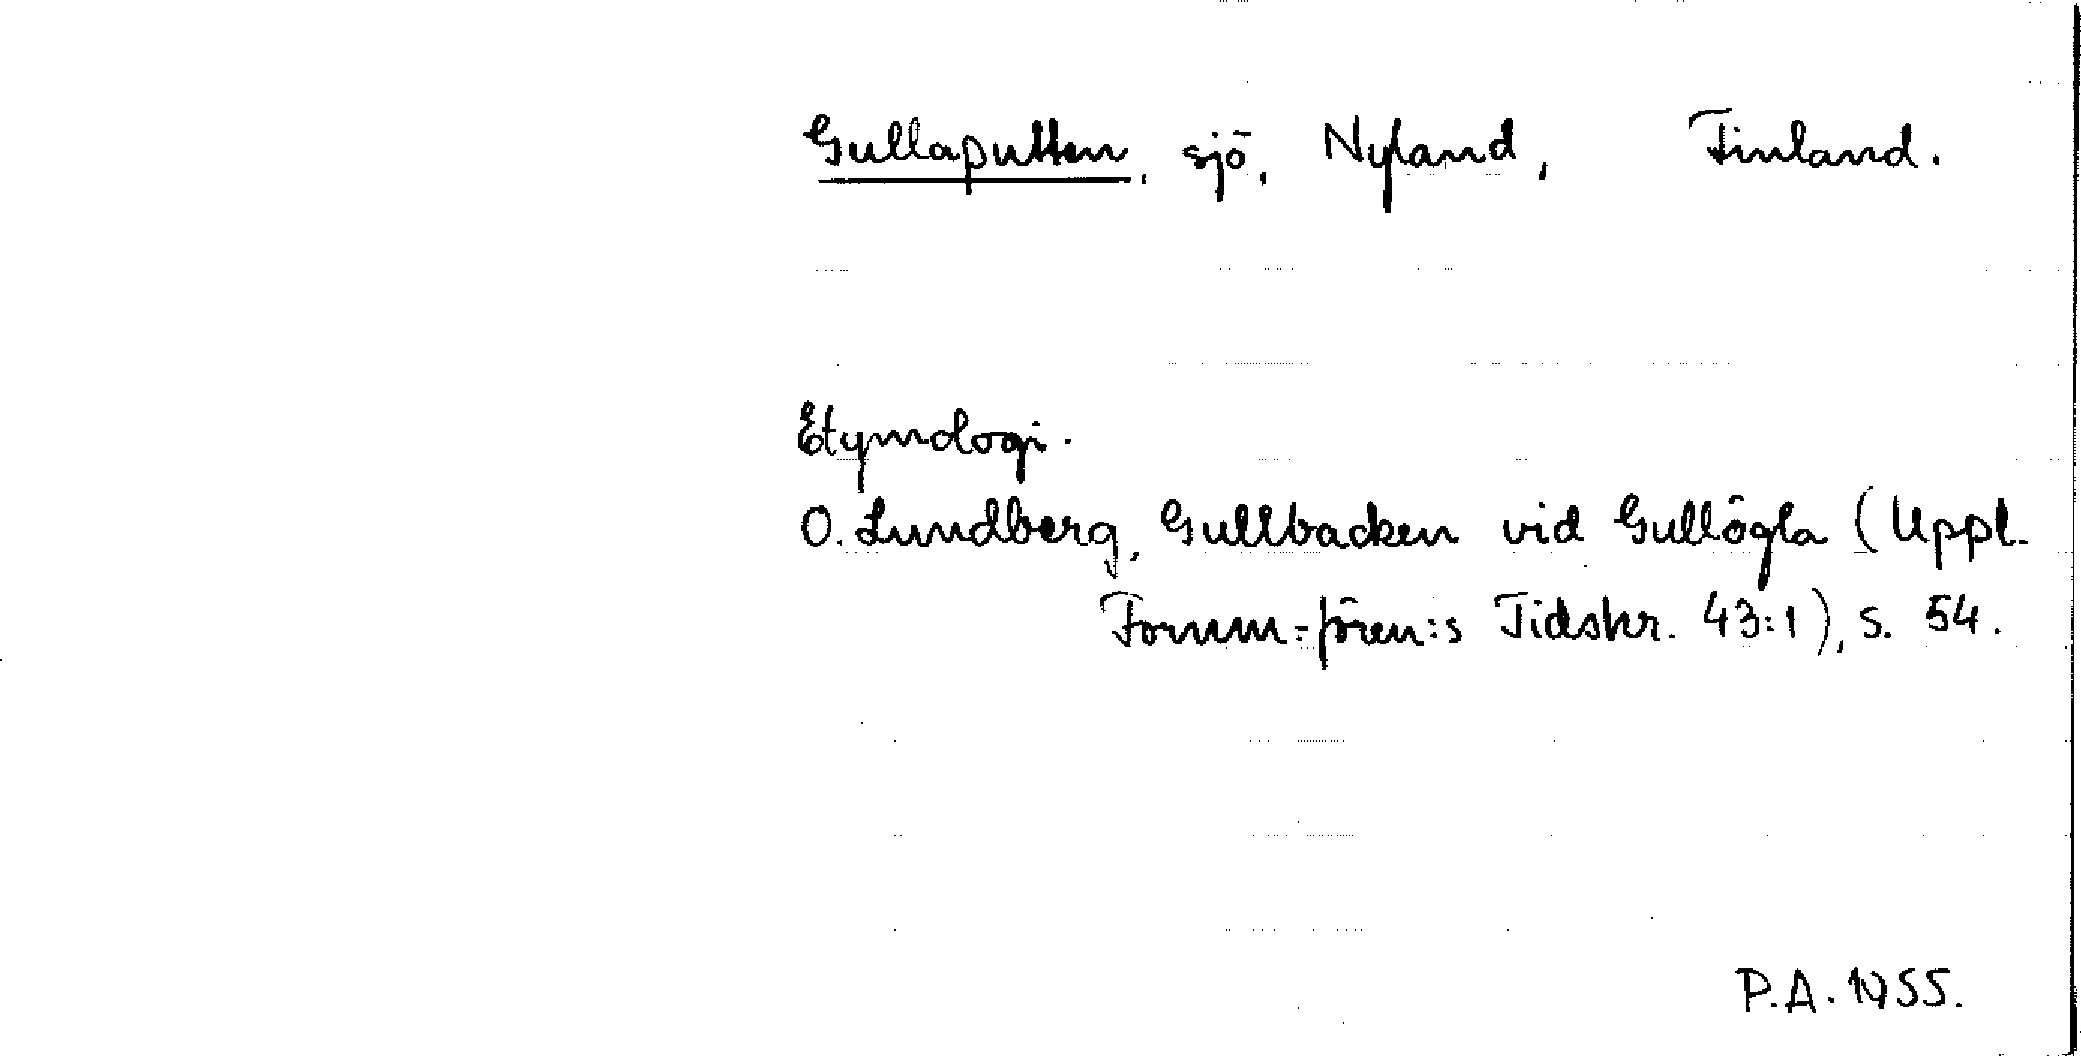 Gullaputten, sjö, Nyland, Finland.
Etymologi.
O. Lundberg, Gullbacken vid Gullögla (Uppl.
Fornm.-fören:s Tidskr. 43:1), s. 54.
P.A. 1955.